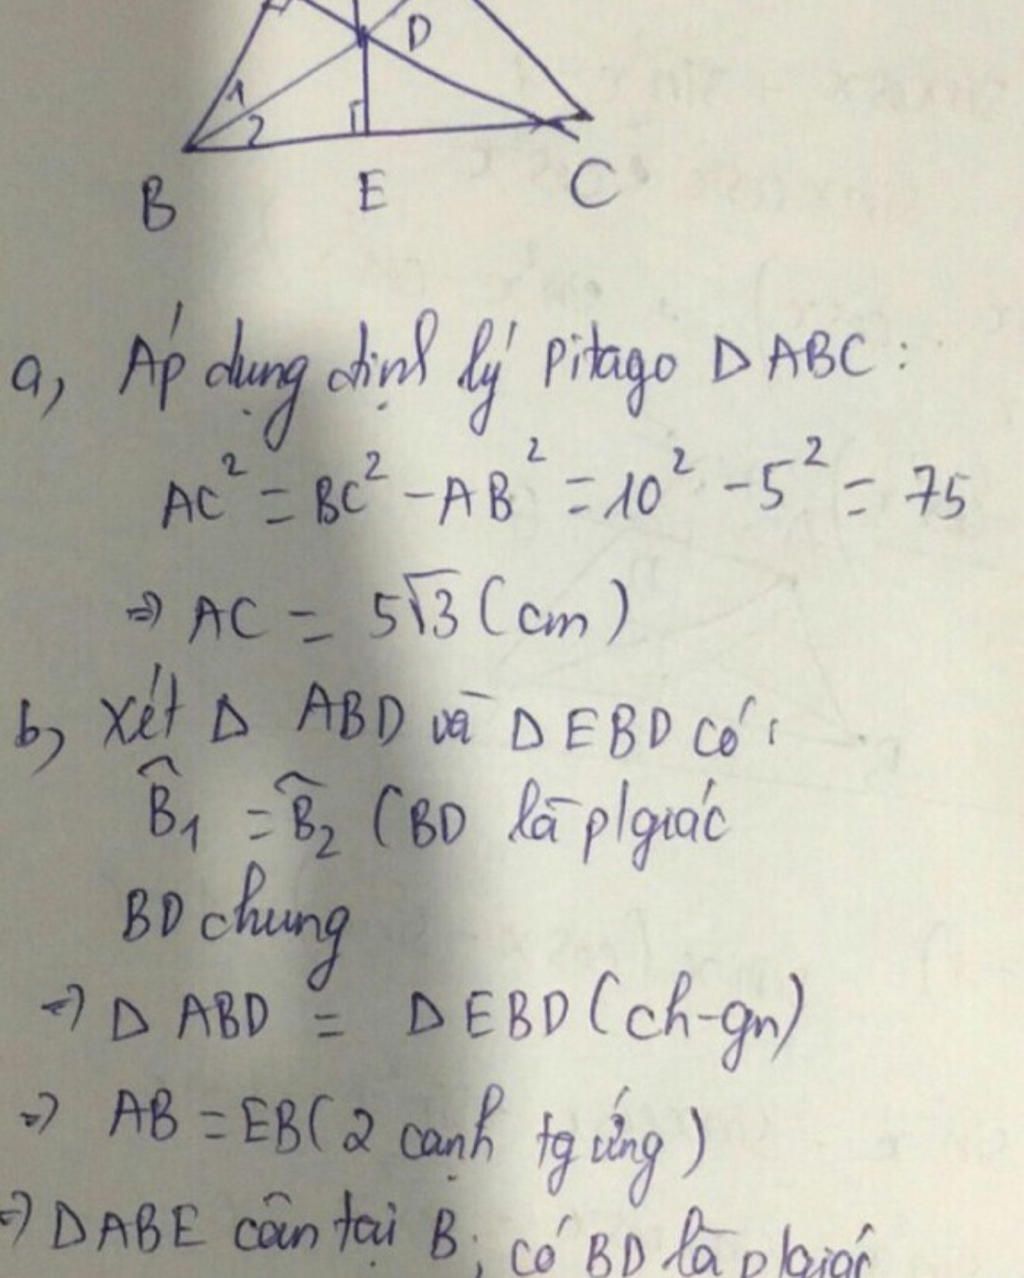 D
1
2
B E C
a, Áp dụng định lý Pitago Δ ABC:
AC² = BC² - AB² = 10² - 5² = 75
⇒ AC = 5√3 (cm)
b, Xét Δ ABD và Δ EBD có:
B̂₁ = B̂₂ (BD là p/giác
BD chung
⇒ Δ ABD = Δ EBD (ch-gn)
⇒ AB = EB (2 cạnh tg ứng)
⇒ Δ ABE cân tại B; có BD là p/giác